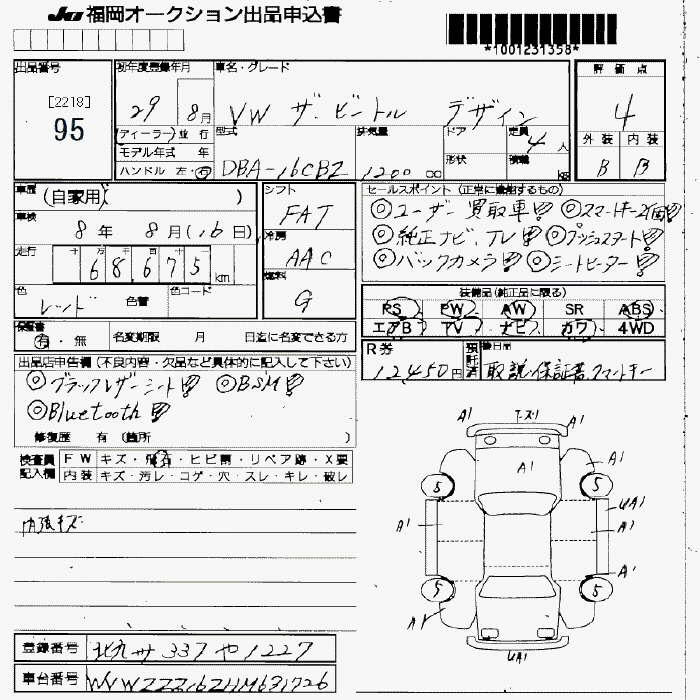 JU福岡オークション出品申込書
*1001231358*
出品番号
[2218]
95
初年度登録年月
29 8月
車名・グレード
VW ザ・ビートル デザイン
評価点
4
外装 内装
B B
ディーラー 並行
モデル年式 年
ハンドル 左・右
型式
DBA-16CBZ
排気量
1200 cc
ドア
形状
定員
4人
積載
kg
車歴
(自家用)
車検
8年 8月(16日)
走行
十万千百十
68,675km
色
レッド 色替
色コード
シフト
FAT
冷房
AAC
燃料
G
セールスポイント(正常に機能するもの)
◎ユーザー買取車!! ◎スマートキー2個!!
◎純正ナビ、TV!! ◎プッシュスタート!!
◎バックカメラ!! ◎シートヒーター!!
装備品(純正品に限る)
PS PW AW SR ABS
エアB TV ナビ カワ 4WD
保証書
有・無
名変期限 月 日迄に名変できる方
R券
12,450円
預託済
後日品
取説、保証書、スマートキー
出品店申告欄(不良内容・欠品など具体的に記入して下さい)
◎ブラックレザーシート!! ◎BSM!!
◎Bluetooth!!
修復歴 有(箇所 )
検査員記入欄
FW キズ・飛石・ヒビ割・リペア跡・X要
内装 キズ・汚レ・コゲ・穴・スレ・キレ・破レ
内張キズ
A1 T-ズ1 A1
A1 A1
5 5
UA1
A1 A1
A1
5 5
A1
UA1
登録番号 北九州 337 や 1227
車台番号 WVWZZZ16ZHM631726